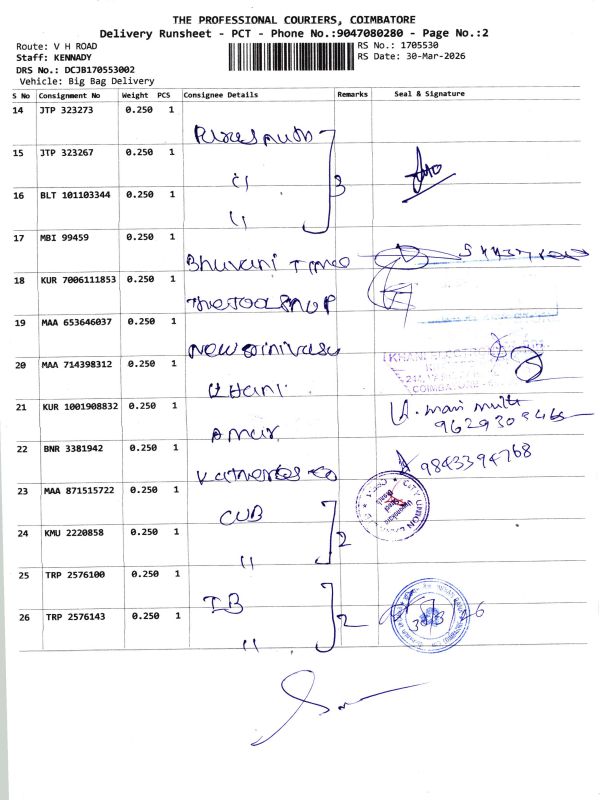 THE PROFESSIONAL COURIERS, COIMBATORE
Delivery Runsheet - PCT - Phone No.:9047080280 - Page No.:2
Route: V H ROAD RS No.: 1705530
Staff: KENNADY RS Date: 30-Mar-2026
DRS No.: DCJB170553002
Vehicle: Big Bag Delivery
S No Consignment No Weight PCS Consignee Details Remarks Seal & Signature
14 JTP 323273 0.250 1
15 JTP 323267 0.250 1 "
3
16 BLT 101103344 0.250 1 "
17 MBI 99459 0.250 1 Bhuvani
18 KUR 7006111853 0.250 1
19 MAA 653646037 0.250 1 New Srinivasa
20 MAA 714398312 0.250 1 Khani
21 KUR 1001908832 0.250 1 Amur
9629309465
22 BNR 3381942 0.250 1 9843394768
23 MAA 871515722 0.250 1 CUB CITY UNION
2
24 KMU 2220858 0.250 1 "
25 TRP 2576100 0.250 1 IB
2
26 TRP 2576143 0.250 1 "